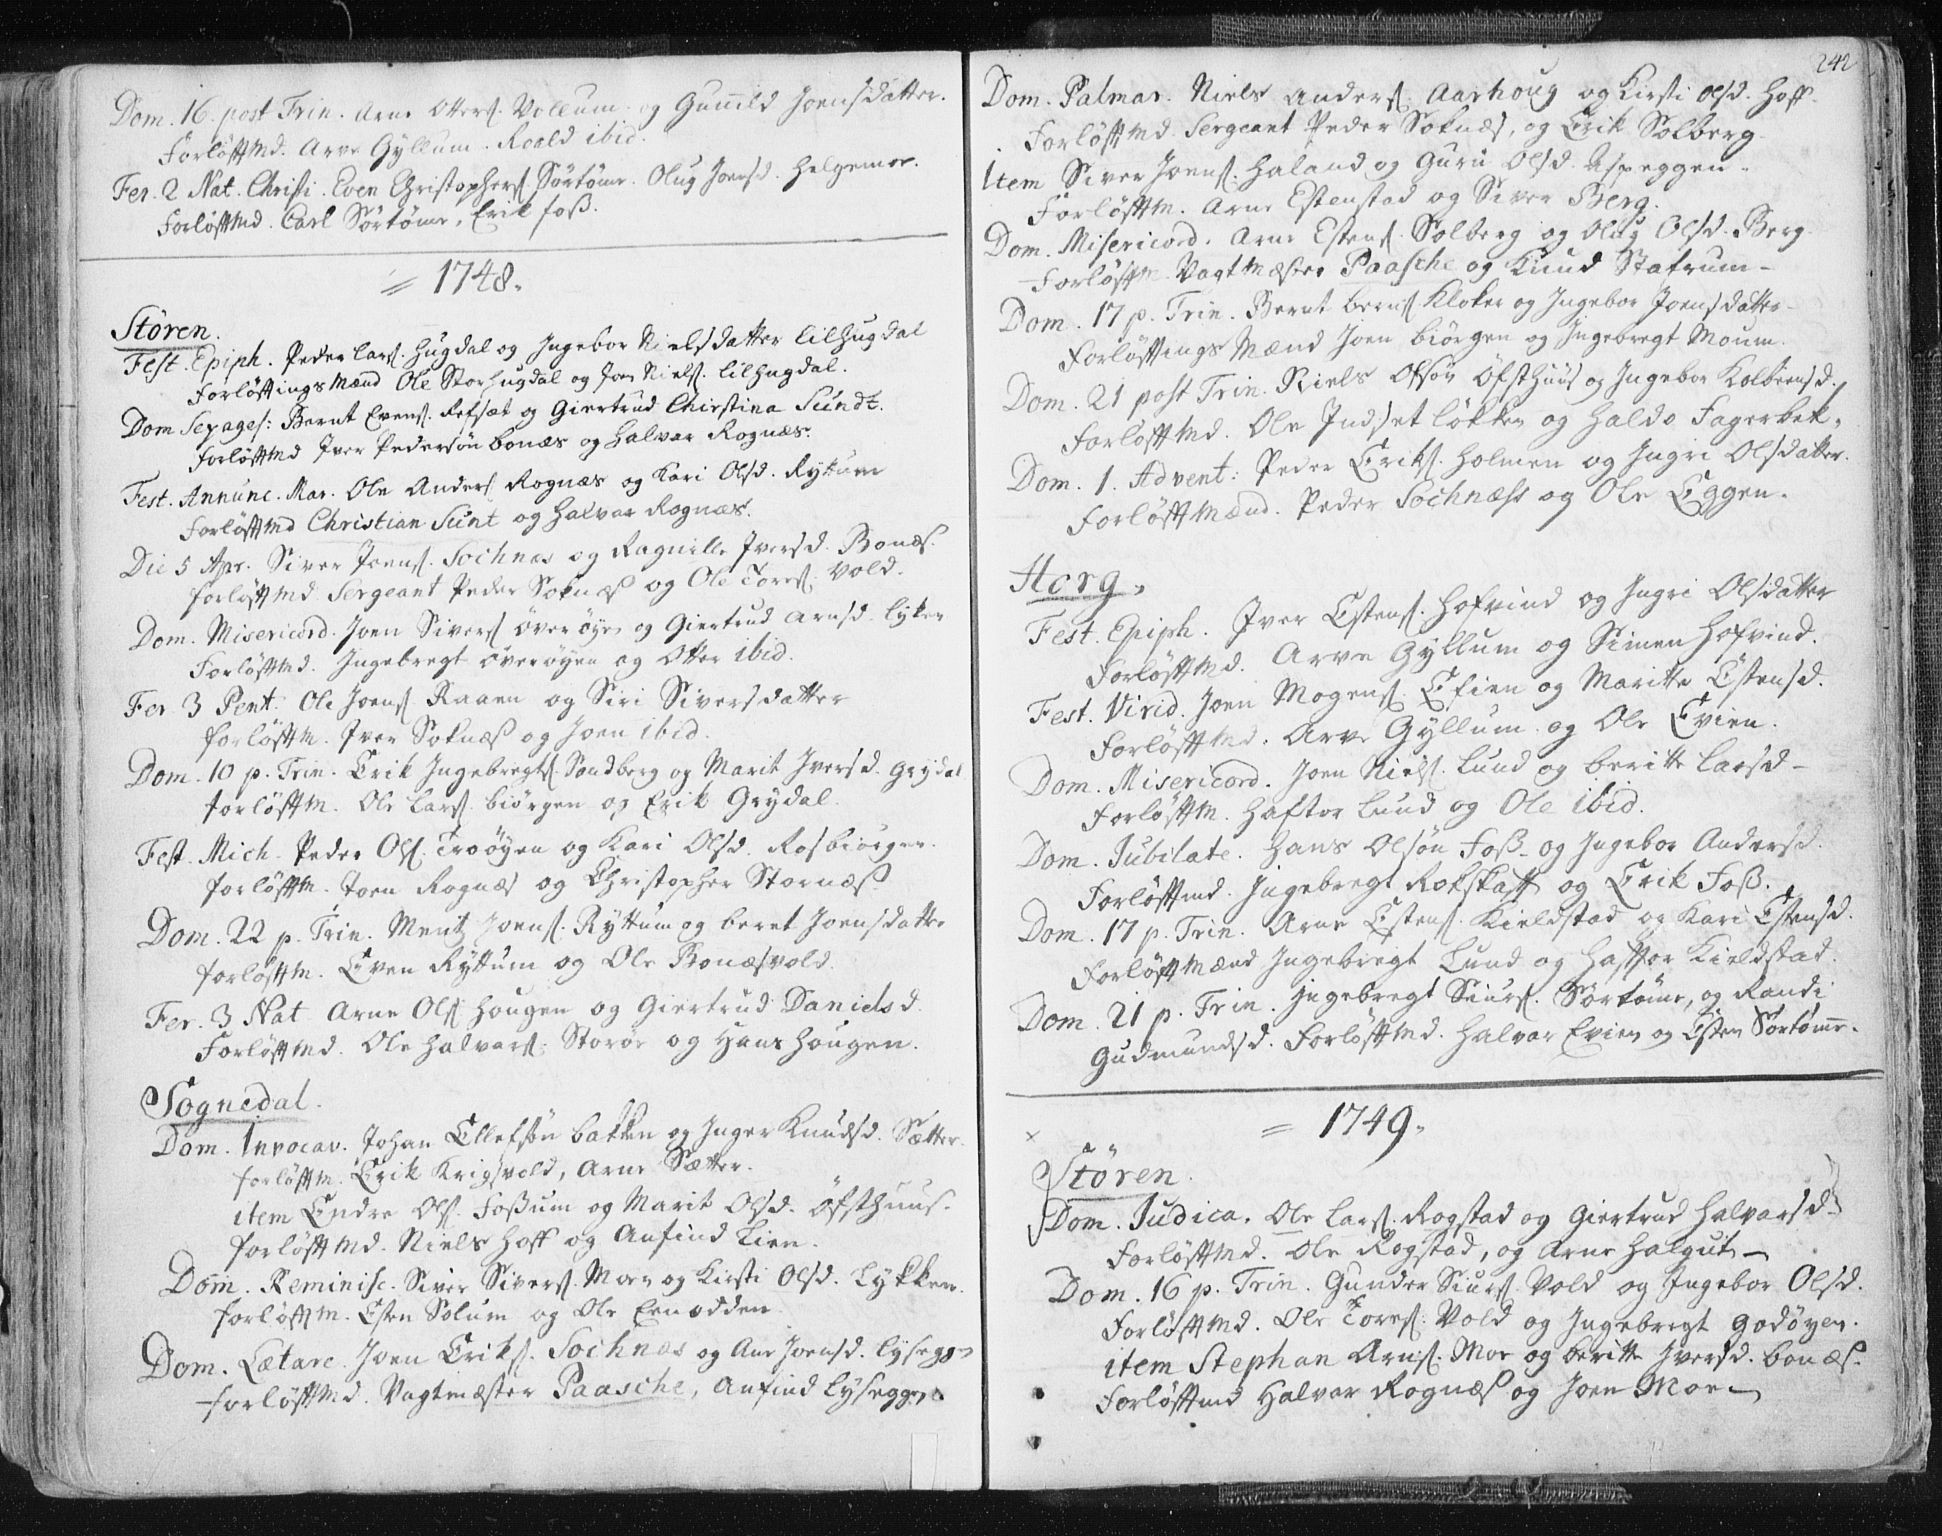 Dom. 16. post Trin. Arne Otters. Vollum og Gunild Joensdatter.
Forløftmd. Arve Gyllum. Roald ibid.
Fer. 2 Nat. Christi. Even Christophers. Sørtømr. Olug Joensd. Helgemoe.
Forløftmd. Carl Sørtømr, Erik Foss.
= 1748.
Støren.
Fest. Epiph. Peder Lars. Hugdal og Ingebor Nielsdatter Lilhugdal
Forløftings Mænd Ole Storhugdal og Joen Niels. Lilhugdal.
Dom Sexages: Bernt Evens. Refsæt og Giertrud Christina Sundt.
Forløftmd Iver Pedersøn Bonæs og Halvar Rognæs.
Fest. Annunc. Mar. Ole Anders Rognæs og Kari Olsd. Ryttum
Forløftmd Christian Sunt og Halvar Rognæs.
Die 5 Apr. Siver Joens. Sochnæs og Ragnille Iversd. Bonæs.
forløftmd Sergeant Peder Soknæs og Ole Tores. Vold.
Dom. Misericord. Joen Sivers Øverøyen og Giertrud Arnsd. Lyken
Forløftmd. Ingebregt Øverøyen og Otter ibid.
Fer 3 Pent. Ole Joens Raaen og Siri Siversdatter
forløftm. Iver Soknæs og Joen ibid.
Dom. 10 p. Trin. Erik Ingebregts. Sandberg og Marit Iversd. Grydal
forløftm. Ole Lars. Biørgen og Erik Grydal.
Fest. Mich. Peder Ols. Troøyen og Kari Olsd. Rosbiørgen.
forløftm. Joen Rognæs og Christopher Stornæs.
Dom. 22 p. Trin. Mentz Joens. Ryttum og Beret Joensdatter
forløftm. Even Ryttum og Ole Bonæsvold.
Fer. 3 Nat Arne Ols Hougen og Giertrud Danielsd.
Forløftmd. Ole Halvars. Storøe og Hans Hougen.
Sognedal.
Dom. Invocav. Johan Ellefsøn Bakken og Inger Knudsd. Sætter.
forløftm. Erik Krigsvold, Arne Sætter.
item Endre Ols. Fossum og Marit Olsd. Øfsthuus.
forløftmd. Niels Hoff og Anfind Lien.
Dom. Reminisc. Siver Sivers. Moen og Kirsti Olsd. Lykken.
forløftm. Esten Solum og Ole Enodden
Dom. Lætare. Joen Eriks. Sochnæs og Ane Joensd. Lyseggen
forløftmd. Vagtmæster Paasche, Anfind Lyseggen.
242
Dom. Palmar. Niels Anders. Aarhoug og Kirsti Olsd. Hoff.
Forløftmd. Sergeant Peder Soknæs, og Erik Solberg.
Item Siver Joens. Haland og Guru Olsd. Aspeggen.
Forløftm. Arne Estenstad og Siver Berg.
Dom. Misericord. Arne Estens. Solberg og Olug Olsd. Berg.
Forløftm. Vagtmæster Paasche og Knud Stafrum.
Dom. 17 p. Trin. Bernt Berns. Kloker og Ingebor Joensdatter
Forløftings Mænd Joen Biørgen og Ingebregt Moum.
Dom. 21 post Trin. Niels Olsøn Øfsthuus og Ingebor Kolbeensd.
Forløftmd. Ole Indsetløkken og Haldo Fagerbek.
Dom. 1. Advent: Peder Eriks. Holmen og Ingri Olsdatter.
Forløftmænd. Peder Sochnæss og Ole Eggen.
Horg.
Fest. Epiph. Iver Estens. Hofvind og Ingri Olsdatter
Forløftmd. Arve Gyllum og Simen Hofvind.
Fest. Virid. Joen Mogens. Efien og Maritte Estensd.
Forløftmd. Arve Gyllum og Ole Evien.
Dom. Misericord. Joen Niels. Lund og Beritte Larsd
Forløftm. Haftor Lund og Ole ibid.
Dom. Jubilate. Hans Olsøn Foss og Ingebor Andersd.
Forløftmd. Ingebregt Rokskaft og Erik Foss.
Dom. 17 p. Trin. Arne Estens. Kieldstad og Kari Estensd.
Forløftmænd Ingebregt Lund og Haftor Kieldstad.
Dom. 21 p. Trin. Ingebregt Siurs. Sørtømr, og Randi
Gudmundsd. Forløftmd. Halvar Evien og Esten Sørtømr.
= 1749.
Støren.
Dom. Judica. Ole Lars. Rogstad og Giertrud Halvarsd.
Forløftmd. Ole Rogstad, og Arne Halgut
Dom. 16 p. Trin. Gunder Siurs. Vold og Ingebor Olsd.
Forløftmd. Ole Tores. Vold og Ingebregt Godøyen.
item Stephan Arns. Moe og Beritte Iversd. Bonæs.
Forløftmd Halvar Rognæs og Joen Moen